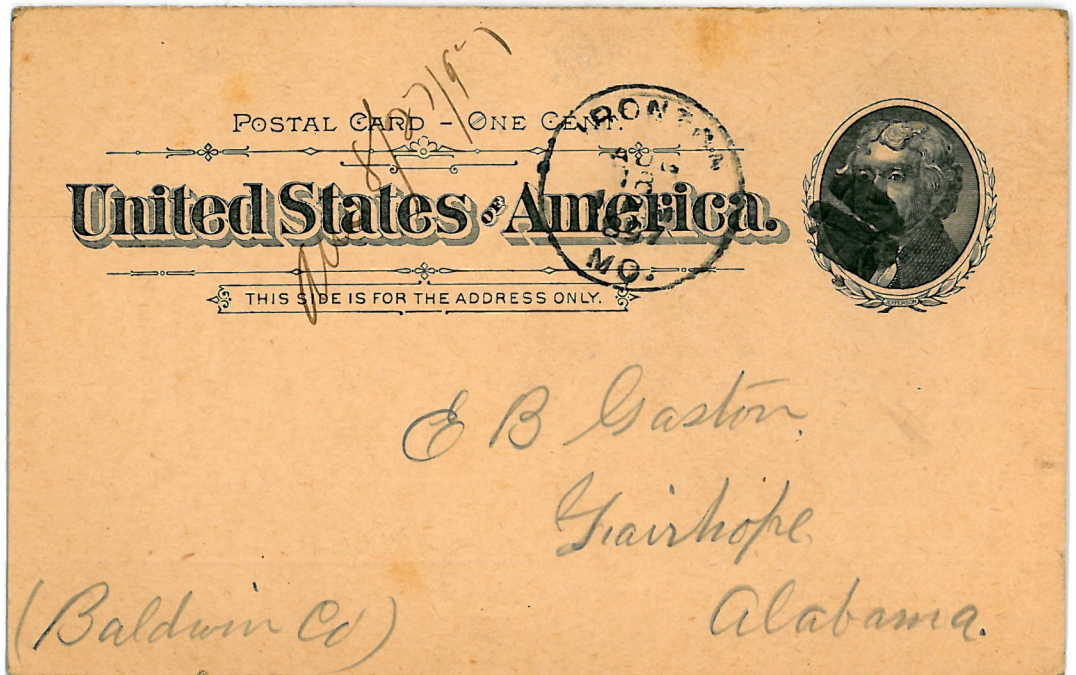 POSTAL CARD – ONE CENT.
United States of America.
THIS SIDE IS FOR THE ADDRESS ONLY.
IRONTON
AUG
MO.
JEFFERSON
8/27/97
E B Gaston.
Fairhope
Alabama.
(Baldwin Co)